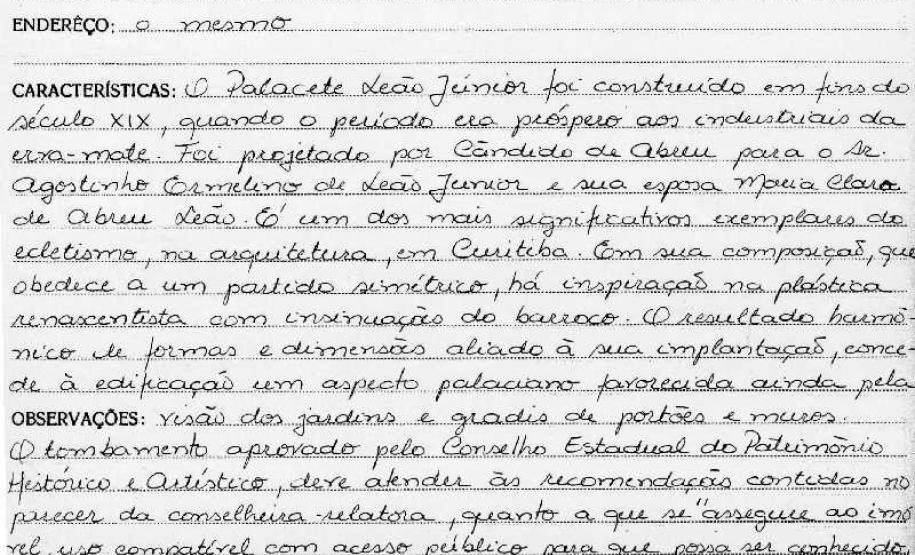 ENDERÊÇO: o mesmo
CARACTERÍSTICAS: O Palacete Leão Júnior foi construído em fins do
século XIX, quando o período era próspero aos industriais da
erva-mate. Foi projetado por Cândido de Abreu para o Sr.
Agostinho Ermelino de Leão Junior e sua esposa Maria Clara
de Abreu Leão. É um dos mais significativos exemplares do
ecletismo, na arquitetura, em Curitiba. Em sua composição, que
obedece a um partido simétrico, há inspiração na plástica
renascentista com insinuações do barroco. O resultado harmô-
nico de formas e dimensões aliado à sua implantação, conce-
de à edificação um aspecto palaciano favorecida ainda pela
OBSERVAÇÕES: visão dos jardins e gradis de portões e muros.
O tombamento aprovado pelo Conselho Estadual do Patrimônio
Histórico e Artístico, deve atender às recomendações contidas no
parecer da conselheira-relatora, quanto a que se "assegure ao imó
vel, uso compatível com acesso público para que possa ser conhecido